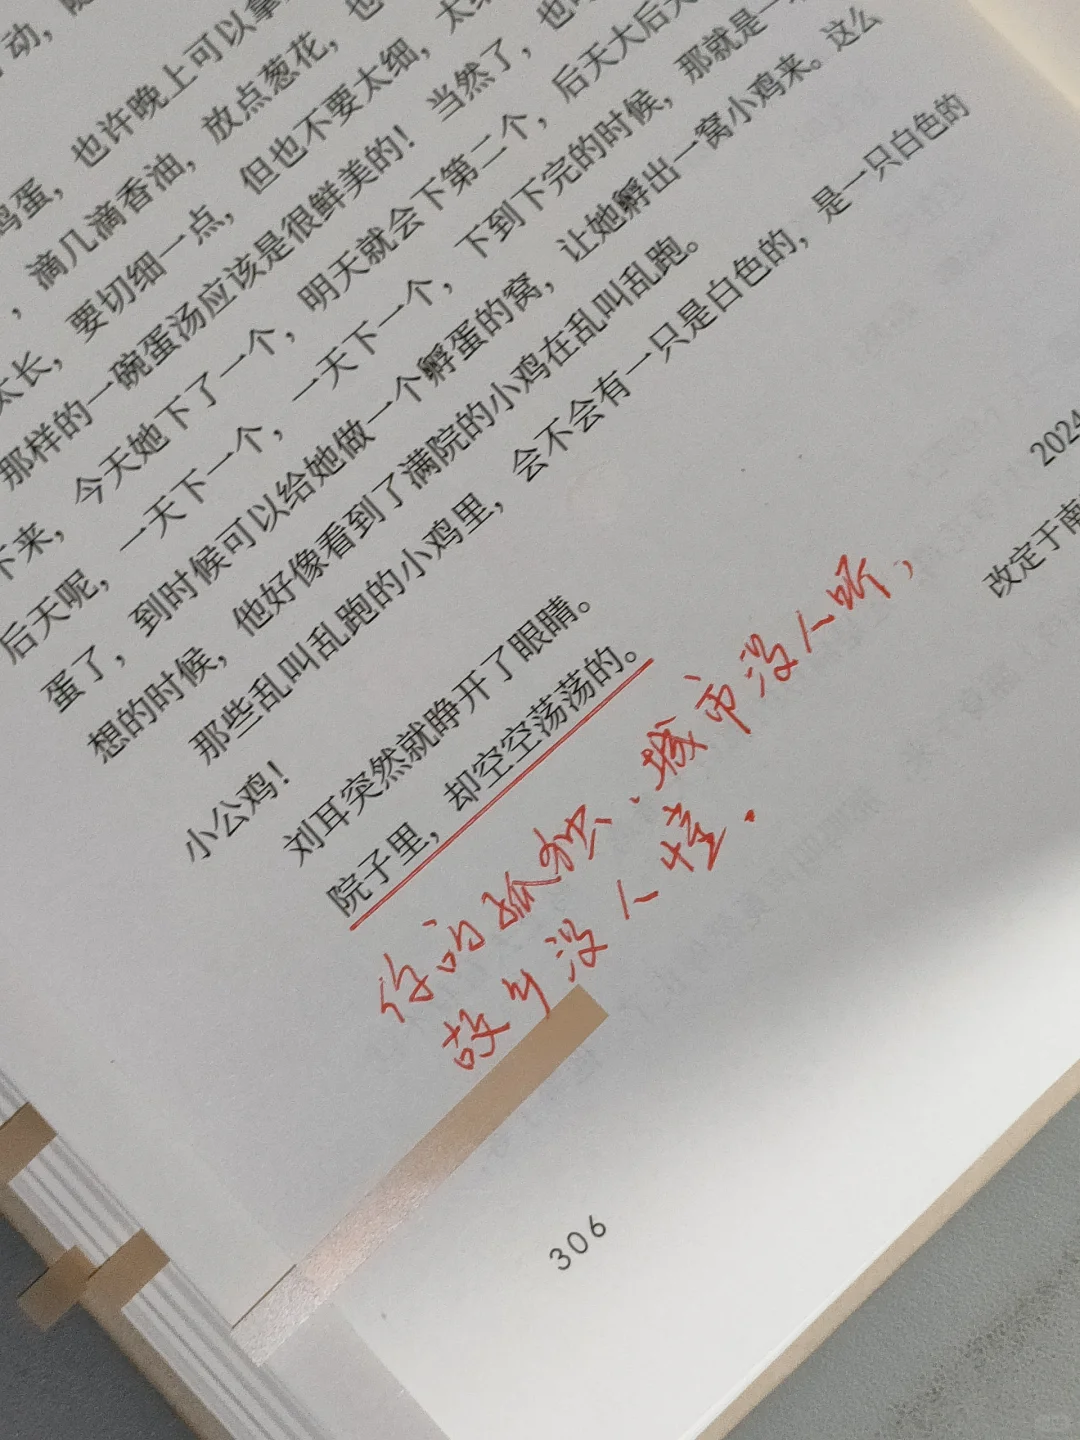 动,
也许晚上可以拿
鸡蛋,
滴几滴香油,放点葱花,也
太长,要切细一点,但也不要太细,太细
那样的一碗蛋汤应该是很鲜美的!当然了,也
下来,今天她下了一个,明天就会下第二个,后天大后天
后天呢,一天下一个,一天下一个,下到下完的时候,那就是一
蛋了,到时候可以给她做一个孵蛋的窝,让她孵出一窝小鸡来。这么
想的时候,他好像看到了满院的小鸡在乱叫乱跑。
那些乱叫乱跑的小鸡里,会不会有一只是白色的,是一只白色的
小公鸡!
刘耳突然就睁开了眼睛。
院子里,却空空荡荡的。
2024
改定于南
你的孤独,城市没人听,
故乡没人懂.
306